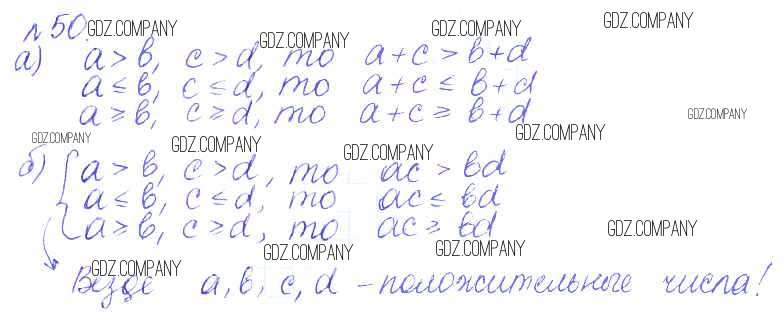 GDZ.COMPANY GDZ.COMPANY GDZ.COMPANY
№ 50. GDZ.COMPANY
а) a > b, c > d, то a + c > b + d
a ≤ b, c ≤ d, то a + c ≤ b + d
a ≥ b, c ≥ d, то a + c ≥ b + d GDZ.COMPANY
GDZ.COMPANY GDZ.COMPANY GDZ.COMPANY GDZ.COMPANY
б) a > b, c > d, то ac > bd
a ≤ b, c ≤ d, то ac ≤ bd
a ≥ b, c ≥ d, то ac ≥ bd
GDZ.COMPANY GDZ.COMPANY
GDZ.COMPANY GDZ.COMPANY GDZ.COMPANY
Везде a, b, c, d – положительные числа!